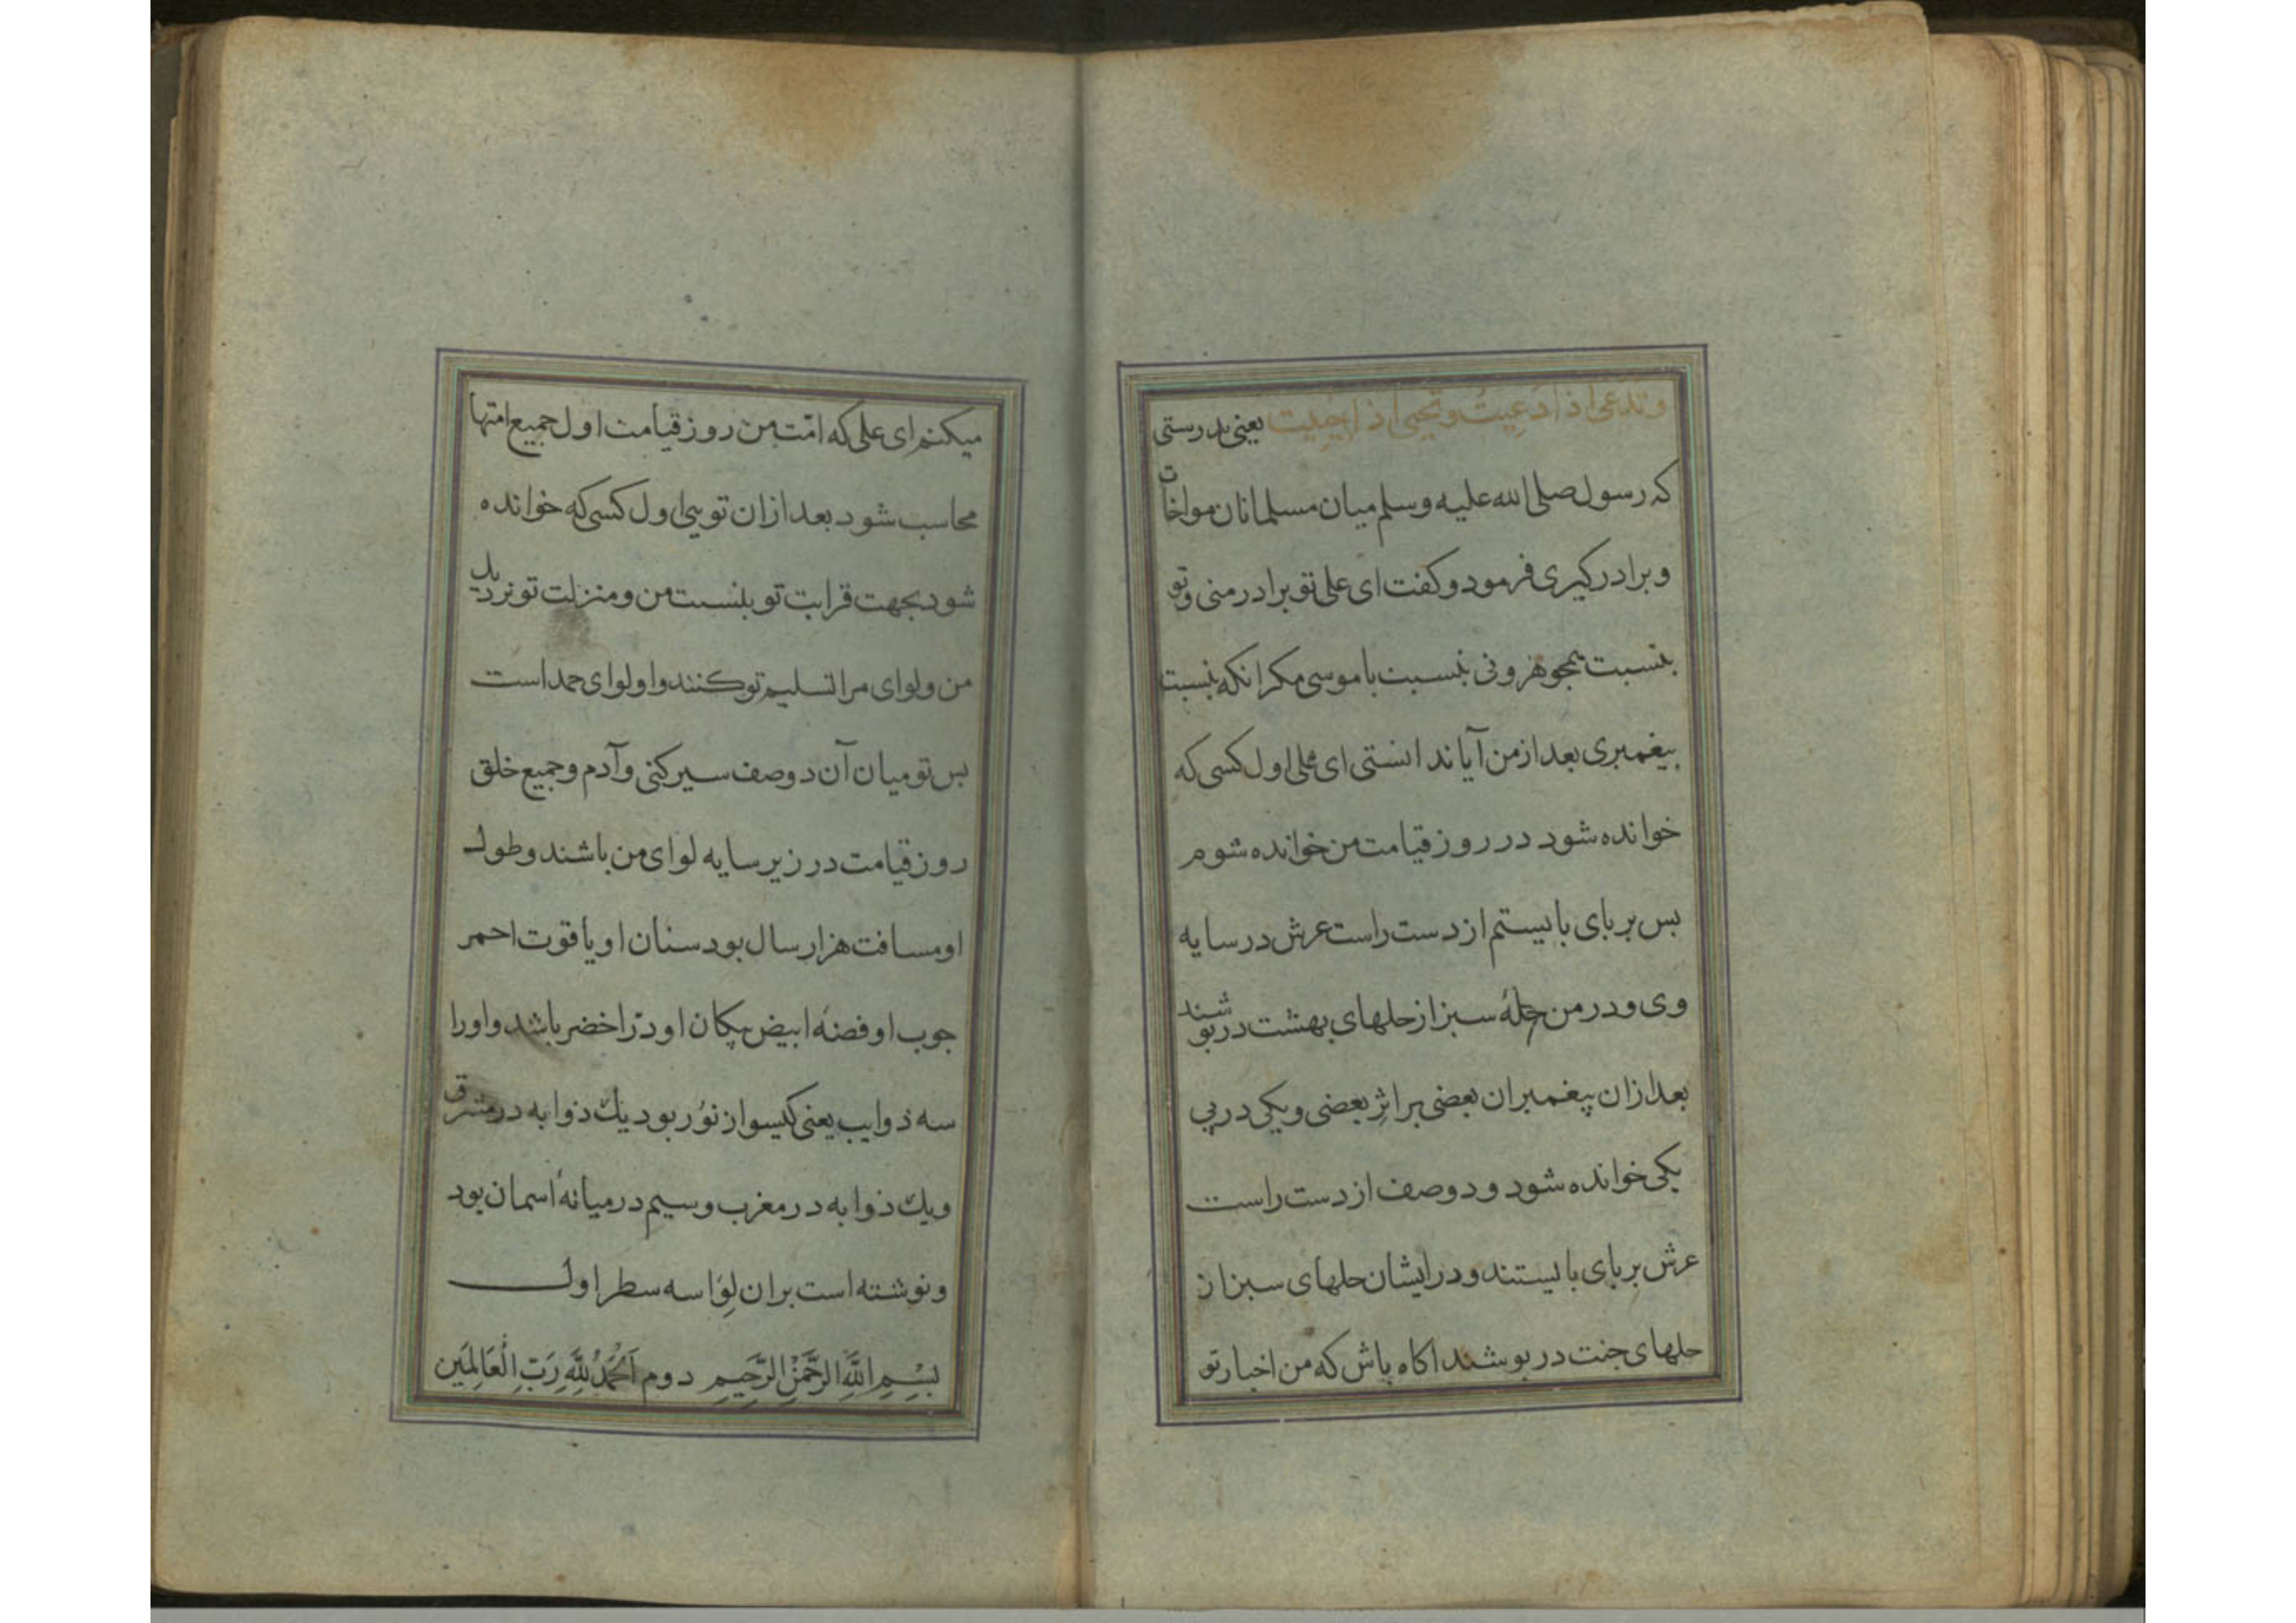 وتدعی اذا دعیت وتحیی اذا حییت یعنی بدرستی
که رسول صلی الله علیه وسلم میان مسلمانان مواخات
وبرادر کیری فرمود وکفت ای علی تو برادر منی وتو
بنسبت بمجو هرونی بنسبت با موسی مکر انکه بنسبت
بیغمبری بعد از من آیا ندانستی ای علی اول کسی که
خوانده شود در روز قیامت من خوانده شوم
بس بر بای بایستم از دست راست عرش در سایه
وی ودر من حلهٔ سبز از حلهای بهشت دربوشند
بعد ازان پیغمبران بعضی بر اثرِ بعضی ویکی در پی
یکی خوانده شود ودوصف از دست راست
عرش بر بای بایستند ودر ایشان حلهای سبز از
حلهای جنت در بوشند اکاه باش که من اخبار تو
میکنم ای علی که امّت من روز قیامت اول جمیع امتها
محاسب شود بعد ازان تویی اول کسی که خوانده
شود بجهت قرابت تو بنسبت من ومنزلت تو نزدیك
من ولوای مرا تسلیم تو کنند واو لوای حمد است
بس تو میان آن دوصف سیر کنی وآدم وجمیع خلق
روز قیامت در زیر سایه لوای من باشند وطول
او مسافت هزار سال بود سنان او یاقوت احمر
جوب او فضهٔ ابیض پیکان او درّ اخضر باشد واورا
سه ذوایب یعنی کیسو از نوُر بود یك ذوابه در مشرق
ویك ذوابه در مغرب وسیم در میانهٔ اسمان بود
ونوشته است بران لِوَا سه سطر اول
بِسْمِ اللَّهِ الرَّحْمٰنِ الرَّحِیمِ دوم اَلْحَمْدُ لِلَّهِ رَبِّ الْعَالَمِین